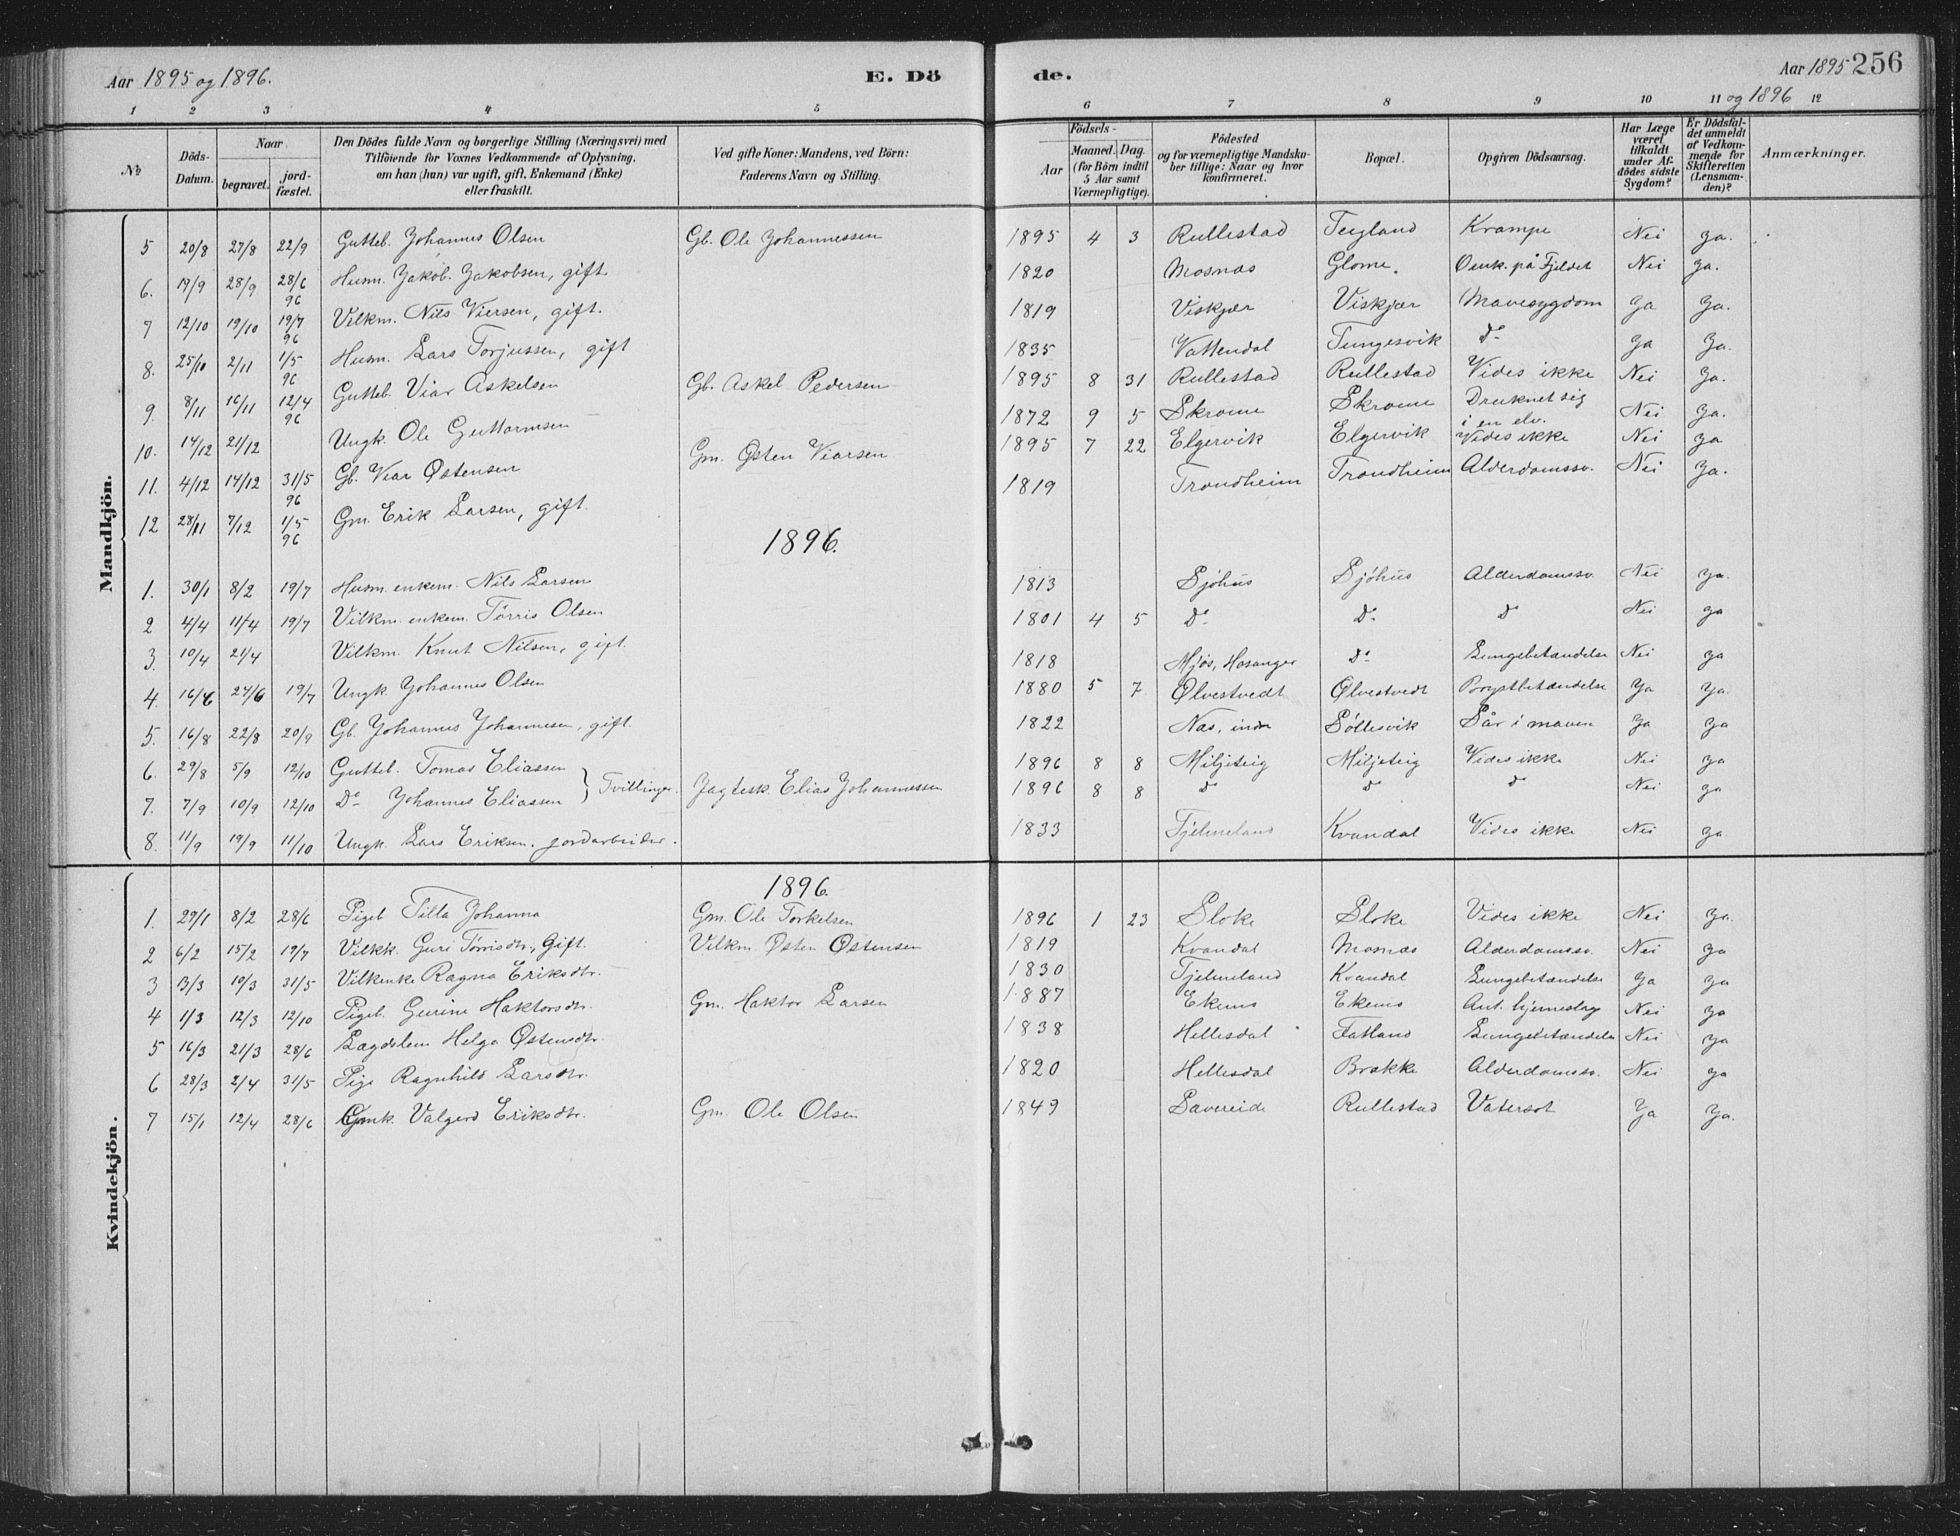 Aar 1895 og 1896.
E. Dö
de.
Aar 1895 256
og 1896
1 2 3 4 5 6 7 8 9 10 11 12
№
Döds-Datum.
Naar
begravet.
jord-fæstet.
Den Dödes fulde Navn og borgerlige Stilling (Næringsvei) med
Tilföiende for Voxnes Vedkommende af Oplysning,
om han (hun) var ugift, gift, Enkemand (Enke)
eller fraskilt.
Ved gifte Koner: Mandens, ved Börn:
Faderens Navn og Stilling.
Födsels-
Aar
Maaned. Dag.
(for Börn indtil
5 Aar samt
Værnepligtige).
Födested
og for værnepligtige Mandska-
ber tillige: Naar og hvor
konfirmeret.
Bopæl.
Opgiven Dödsaarsag.
Har Læge
været
tilkaldt
under Af-
dödes sidste
Sygdom?
Er Dödsfal-
det anmeldt
af Vedkom-
mende for
Skifteretten
(Lensman-
den)?
Anmærkninger.
Mandkjön.
5 20/8 27/8 22/9 Gutteb. Johannes Olsen Gb. Ole Johannessen 1895 4 3 Rullestad Teigland Krampe Nei Ja.
6. 19/9 28/9 28/6 96 Husm. Jakob Jakobsen, gift. 1820 Mosnæs Glome. Omk. på Fjeldet Nei Ja.
7 12/10 19/10 19/7 96 Vilkm. Nils Viersen, gift. 1819 Viskjær Viskjær Mavesygdom Ja Ja.
8. 25/10 2/11 1/5 96 Husm. Lars Torjussen, gift 1835 Vattendal Tungesvik Do Ja Ja.
9. 8/11 16/11 12/4 96 Gutteb. Viar Askelsen Gb. Askel Pedersen 1895 8 31 Rullestad Rullestad Vides ikke Nei Ja.
10. 14/12 21/12 Ungk. Ole Guttormsen 1872 9 5 Skromme Skromme Druknet sig i en elv. Nei Ja.
11. 4/12 14/12 31/5 96 Gb. Viar Østensen Gm. Østen Viarsen 1895 7 22 Elgervik Elgervik Vides ikke Nei Ja
12 28/11 7/12 1/5 96 Gm. Erik Larsen, gift. 1819 Trondheim Trondheim Alderdomssv. Nei Ja.
1896.
1. 30/1 8/2 19/7 Husm. enkem. Nils Larsen 1813 Sjöhus Sjöhus Alderdomssv. Nei Ja.
2 4/4 11/4 19/7 Vilkm. enkem. Tørris Olsen 1801 4 5 Do Do Do Nei Ja
3. 10/4 21/4 Vilkm. Knut Nilsen, gift. 1818 Mjøs, Hosanger Do Lungebetændelse Nei Ja
4. 16/6 24/6 19/7 Ungk. Johannes Olsen 1880 5 7 Ølvestvedt Ølvestvedt Brystbetændelse Ja Ja.
5. 16/8 22/8 20/9 Gb. Johannes Johannesen, gift. 1822 Næs, indre Söllesvik Sår i maven Ja Ja
6. 29/8 5/9 12/10 Gutteb. Tomas Eliassen 1896 8 8 Miljeteig Miljeteig Vides ikke Nei Ja
7. 7/9 10/9 12/10 Do Johannes Eliassen } Tvillinger. Jagtesk. Elias Johannessen 1896 8 8 Do Do Do Nei Ja
8. 11/9 19/9 11/10 Ungk. Lars Eriksen. jordarbeider. 1833 Tjelmeland Kvandal Vides ikke Nei Ja.
Kvindekjön.
1896.
1. 29/1 8/2 28/6 Pigeb. Tilla Johanna Gm. Ole Torkelsen 1896 1 23 Sloke Sloke Vides ikke Nei Ja.
2 6/2 15/2 19/7 Vilkk. Guri Tørrisdtr., Gift. Vilkm. Østen Østensen 1819 Kvandal Mosnæs Alderdomssv. Nei Ja
3 13/3 19/3 31/5 Vilkenke Ragna Eriksdtr. 1830 Tjelmeland Kvandal Lungebetændelse Ja Ja
4 1/3 12/3 12/10 Pigeb. Gurine Haktorsdtr. Gm. Haktor Larsen 1887 Ekems Ekems Ant. hjerneslag Nei Ja
5 16/3 21/3 28/6 Lægdslem Helga Østensdtr. 1838 Hellesdal Fatland Lungebetændelse Nei Ja
6 28/3 2/4 31/5 Pige Ragnhild Larsdtr. 1820 Hellesdal Brække Alderdomssv. Nei Ja
7 15/1 12/4 28/6 Gmk. Valgerd Eriksdtr. Gm. Ole Olsen 1849 Savereide Rullestad Vatersot Ja Ja.